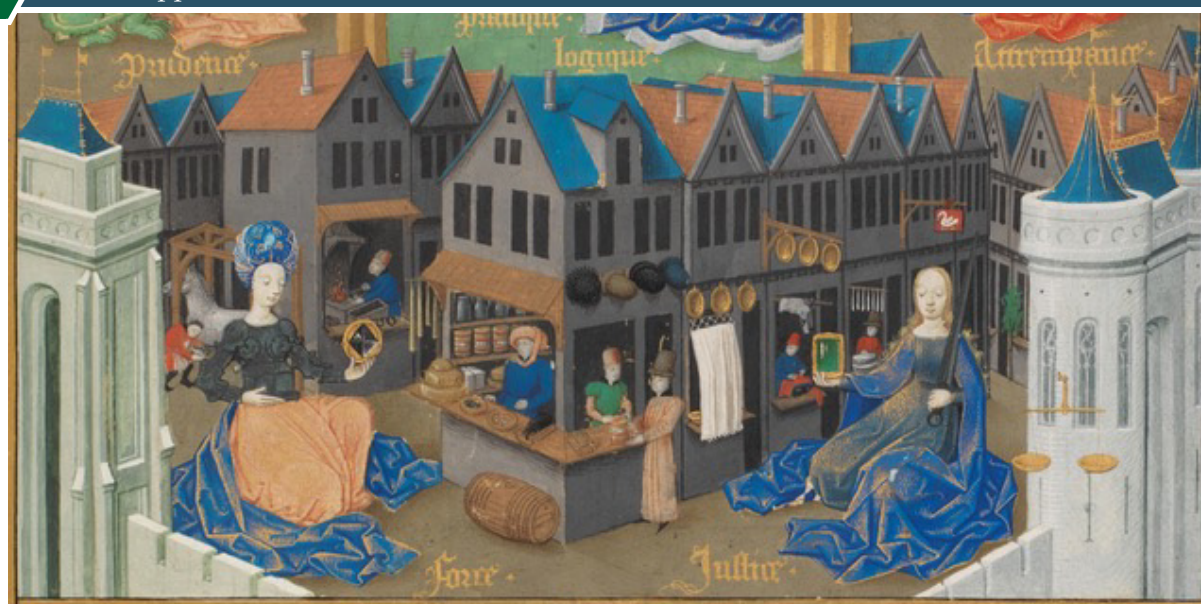 Prudence
logique
Attrempance
Force
Justice